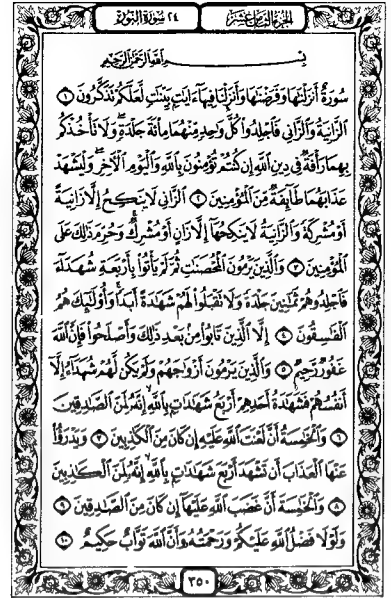 الجزء الثامن عشر ٢٤ سورة النور
بسم الله الرحمن الرحيم
سُورَةٌ أَنزَلْنَٰهَا وَفَرَضْنَٰهَا وَأَنزَلْنَا فِيهَآ ءَايَٰتٍۭ بَيِّنَٰتٍ لَّعَلَّكُمْ تَذَكَّرُونَ ١
ٱلزَّانِيَةُ وَٱلزَّانِى فَٱجْلِدُوا۟ كُلَّ وَٰحِدٍ مِّنْهُمَا مِا۟ئَةَ جَلْدَةٍ وَلَا تَأْخُذْكُم
بِهِمَا رَأْفَةٌ فِى دِينِ ٱللَّهِ إِن كُنتُمْ تُؤْمِنُونَ بِٱللَّهِ وَٱلْيَوْمِ ٱلْءَاخِرِ وَلْيَشْهَدْ
عَذَابَهُمَا طَآئِفَةٌ مِّنَ ٱلْمُؤْمِنِينَ ٢ ٱلزَّانِى لَا يَنكِحُ إِلَّا زَانِيَةً
أَوْ مُشْرِكَةً وَٱلزَّانِيَةُ لَا يَنكِحُهَآ إِلَّا زَانٍ أَوْ مُشْرِكٌ وَحُرِّمَ ذَٰلِكَ عَلَى
ٱلْمُؤْمِنِينَ ٣ وَٱلَّذِينَ يَرْمُونَ ٱلْمُحْصَنَٰتِ ثُمَّ لَمْ يَأْتُوا۟ بِأَرْبَعَةِ شُهَدَآءَ
فَٱجْلِدُوهُمْ ثَمَٰنِينَ جَلْدَةً وَلَا تَقْبَلُوا۟ لَهُمْ شَهَٰدَةً أَبَدًا وَأُو۟لَٰٓئِكَ هُمُ
ٱلْفَٰسِقُونَ ٤ إِلَّا ٱلَّذِينَ تَابُوا۟ مِنۢ بَعْدِ ذَٰلِكَ وَأَصْلَحُوا۟ فَإِنَّ ٱللَّهَ
غَفُورٌ رَّحِيمٌ ٥ وَٱلَّذِينَ يَرْمُونَ أَزْوَٰجَهُمْ وَلَمْ يَكُن لَّهُمْ شُهَدَآءُ إِلَّآ
أَنفُسُهُمْ فَشَهَٰدَةُ أَحَدِهِمْ أَرْبَعُ شَهَٰدَٰتٍۭ بِٱللَّهِ إِنَّهُۥ لَمِنَ ٱلصَّٰدِقِينَ
٦ وَٱلْخَٰمِسَةُ أَنَّ لَعْنَتَ ٱللَّهِ عَلَيْهِ إِن كَانَ مِنَ ٱلْكَٰذِبِينَ ٧ وَيَدْرَؤُا۟
عَنْهَا ٱلْعَذَابَ أَن تَشْهَدَ أَرْبَعَ شَهَٰدَٰتٍۭ بِٱللَّهِ إِنَّهُۥ لَمِنَ ٱلْكَٰذِبِينَ
٨ وَٱلْخَٰمِسَةَ أَنَّ غَضَبَ ٱللَّهِ عَلَيْهَآ إِن كَانَ مِنَ ٱلصَّٰدِقِينَ ٩
وَلَوْلَا فَضْلُ ٱللَّهِ عَلَيْكُمْ وَرَحْمَتُهُۥ وَأَنَّ ٱللَّهَ تَوَّابٌ حَكِيمٌ ١٠
٣٥٠